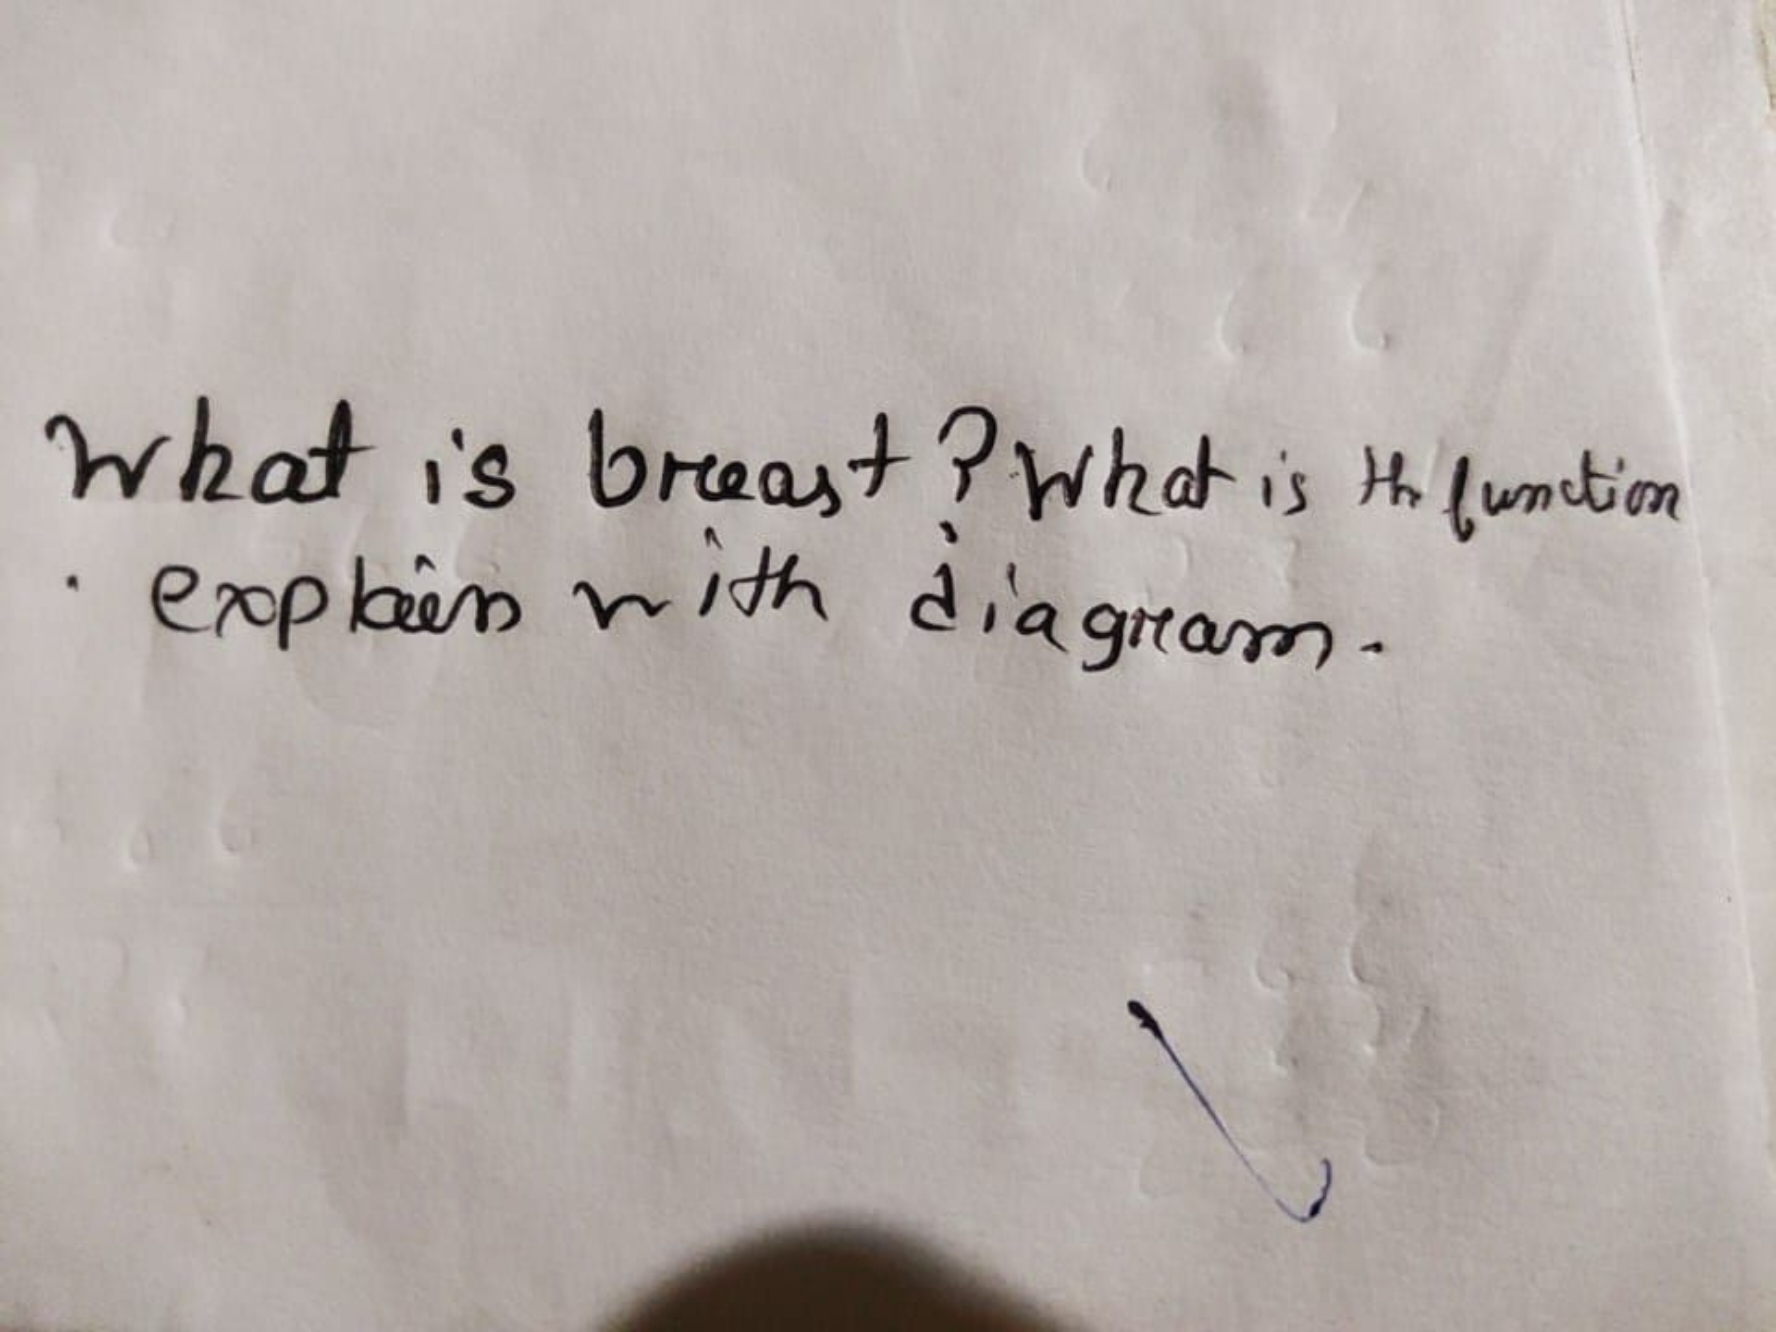 What is breast? What is the function
explain with diagram.